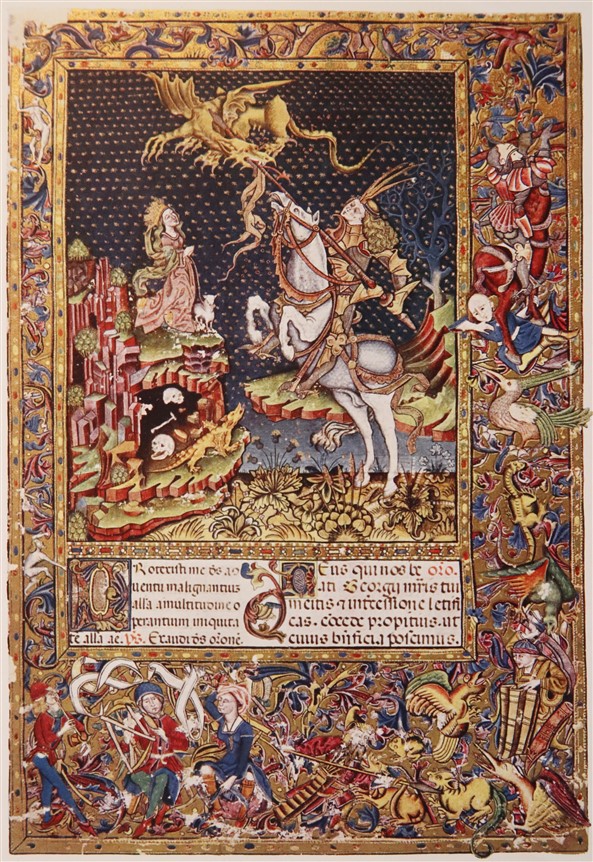 Protexisti me ds a
uentu malignantius
alla a multitudine o
perantium iniquita
te alla ae. ps. Exaudi ds oronē.
Deus qui nos be
ati Georgii mr̄is tui
meritis & intecessione letifi
cas. cōcede propitius. ut
cuius bn̄ficia poscimus.